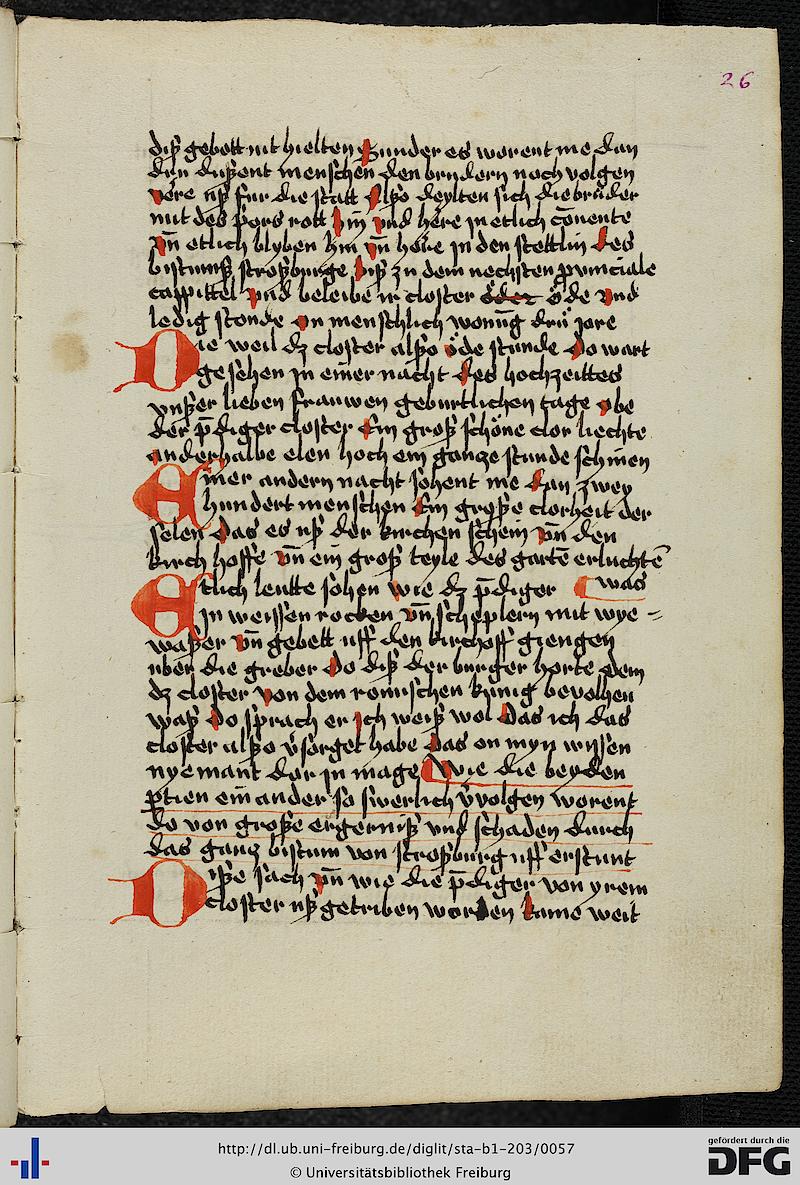 26
diß gebott nit hielten Sunder es worent me dan
drü dußent menschen den brudern noch volgen
verre uß fur die statt Alßo deylten sich die brüder
mit des pors rott hin vnd here in etlich cōuente
vn̄ etlich blyben hin vn̄ here in den stettlin des
bistumß stroßburge biß zu dem nechsten ꝓuinciale
cappittel vnd beleibe ir closter öde vnd
ledig stonde on menschlich wonūg drü jore
Die weil dz closter alßo öde stunde Do wart
gesehen in einer nacht des hochzeittes
vnßer lieben frauwen geburtlichen tage obe
der p̄diger closter Ein groß schöne clor liechte
anderhalbe elen hoch ein ganze stunde schinen
Einer andern nacht sohent me dan zwey
hundert menschen Ein große clorheit der
selen Das es uß der kirchen schein vn̄ den
kirch hoffe vn̄ ein groß teyle des gartē erluchtē
Etlich leutte sohen wie dz p̄diger was
in weissen rocken vn̄ scheplern mit wye=
waßer vn̄ gebett uff den kirchoff giengen
uber die greber Do diß der burger horte dem
dz closter von dem romischen kunig bevolhen
waß Do sprach er ich weiß wol Das ich das
closter alßo v̄sorget habe Das on myn wissen
nyemant dar in mage Wie die beyden
ptien ein ander so swerlich v̄volgen worent
do von große ergerniß vnd schaden durch
das ganz bistum von stroßburg uff erstunt
Diße sach vn̄ wie die p̄diger von yrem
closter uß getriben worden kame weit
http://dl.ub.uni-freiburg.de/diglit/sta-b1-203/0057
© Universitätsbibliothek Freiburg
gefördert durch die
DFG